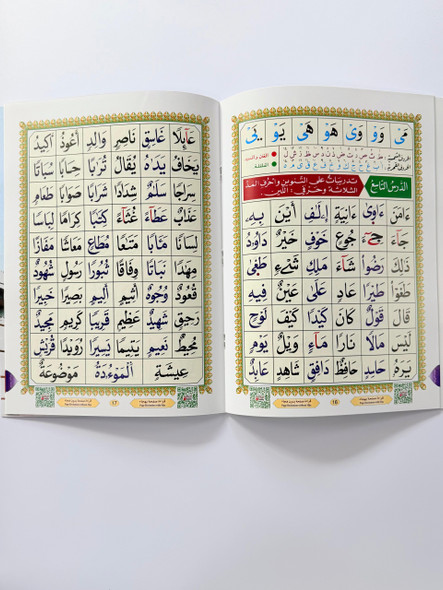 مَىْ وَوْ وَىْ هَوْ هَىْ يَوْ يَىْ
الدرس التاسع تدريبات على التنوين وأحرف المد
الثلاثة وحرفي اللين
ءَامَنَ ءَاوَىٰ ءَانِيَةٍ إِۦلَٰفِ أَيْنَ بِهِۦ
جَآءَ جِىٓءَ جُوعٍ خَوْفٍ خَيْرٌ دَاوُۥدُ
ذَٰلِكَ رَضُوا۟ شَآءَ مَلِكِ شَىْءٍ طَغَىٰ
طَغَوْا۟ طَيْرًا عَادٍ عَلَىٰ عَيْنٌ فِيهِ
قَالَ قَوْلٌ كَانَ كَيْدًا كَيْفَ لَوْحٍ
لَيْسَ مَالًا نَارًا مَآءً وَيْلٌ يَوْمَ
يَرَهُۥ حَاسِدٍ حَافِظٌ دَافِقٍ شَاهِدٍ عَابِدٌ
16
عَآئِلًا غَاسِقٍ نَاصِرٍ وَالِدٍ أَعُوذُ أَكِيدُ
يَخَافُ يَدَهُۥ يُقَالُ تُرَٰبًا حِسَابًا سُبَاتًا
سِرَاجًا سَلَٰمٌ شِدَادًا شَرَابًا صَوَابًا طَعَامٍ
عَذَابٌ عَطَآءً غُثَآءً كِتَٰبًا كِرَامًا لِبَاسًا
لِسَانًا مَـَٔابًا مَتَٰعًا مُطَاعٍ مَعَاشًا مَفَازًا
مِهَٰدًا نَبَاتًا وِفَاقًا ثُبُورًا رَسُولٍ شُهُودٌ
قُعُودٌ وُجُوهٌ أَثِيمٍ أَلِيمٍ بَصِيرًا خَبِيرًا
رَحِيقٍ شَهِيدٌ عَظِيمٍ قَرِيبًا كَرِيمٍ مَجِيدٌ
مُحِيطٌ نَعِيمٍ يَتِيمًا يَسِيرًا رُوَيْدًا قُرَيْشٍ
عِيشَةٍ ٱلْمَوْءُۥدَةُ مَوْضُوعَةٌ
17